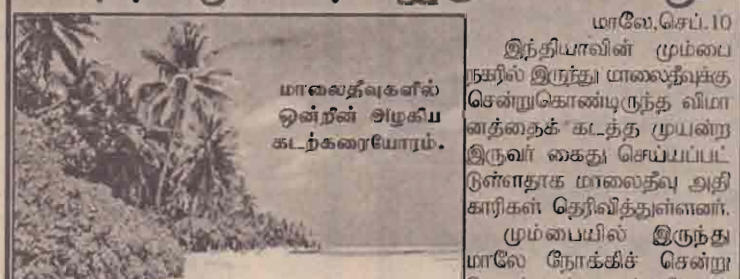 மாலைதீவுகளில்
ஒன்றின் அழகிய
கடற்கரையோரம்.
மாலே,செப்.10
இந்தியாவின் மும்பை
நகரில் இருந்து மாலைதீவுக்கு
சென்றுகொண்டிருந்த விமா
னத்தைக் கடத்த முயன்ற
இருவர் கைது செய்யப்பட்
டுள்ளதாக மாலைதீவு அதி
காரிகள் தெரிவித்துள்ளனர்.
மும்பையில் இருந்து
மாலே நோக்கிச் சென்று